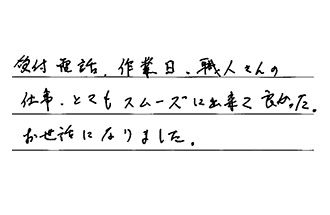 受付電話、作業日、職人さんの
仕事、とてもスムーズに出来て良かった。
お世話になりました。